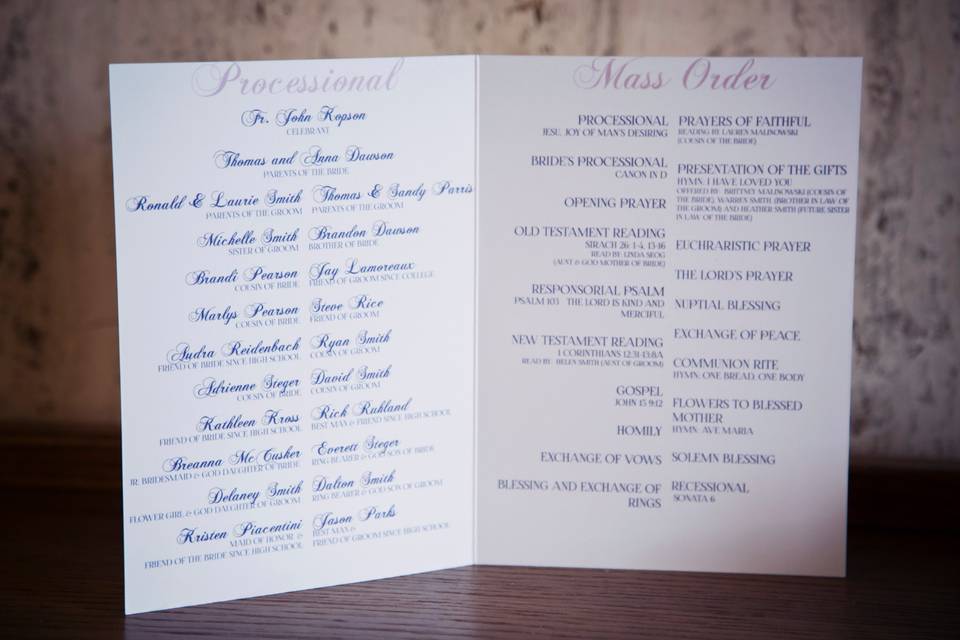 Processional
Fr. John Kopson
CELEBRANT
Thomas and Anna Dawson
PARENTS OF THE BRIDE
Ronald & Laurie Smith
PARENTS OF THE GROOM
Thomas & Sandy Parris
PARENTS OF THE GROOM
Michelle Smith
SISTER OF GROOM
Brandon Dawson
BROTHER OF BRIDE
Brandi Pearson
COUSIN OF BRIDE
Jay Lamoreaux
FRIEND OF GROOM SINCE COLLEGE
Marlys Pearson
COUSIN OF BRIDE
Steve Rice
FRIEND OF GROOM
Audra Reidenbach
FRIEND OF BRIDE SINCE HIGH SCHOOL
Ryan Smith
COUSIN OF GROOM
Adrienne Steger
COUSIN OF BRIDE
David Smith
COUSIN OF GROOM
Kathleen Kross
FRIEND OF BRIDE SINCE HIGH SCHOOL
Rich Ruhland
BEST MAN & FRIEND SINCE HIGH SCHOOL
Breanna McCusker
JR. BRIDESMAID & GOD DAUGHTER OF BRIDE
Everett Steger
RING BEARER & GOD SON OF BRIDE
Delaney Smith
FLOWER GIRL & GOD DAUGHTER OF GROOM
Dalton Smith
RING BEARER & GOD SON OF GROOM
Kristen Piacentini
MAID OF HONOR &
FRIEND OF THE BRIDE SINCE HIGH SCHOOL
Jason Parks
BEST MAN &
FRIEND OF GROOM SINCE HIGH SCHOOL
Mass Order
PROCESSIONAL
JESU, JOY OF MAN'S DESIRING
BRIDE'S PROCESSIONAL
CANON IN D
OPENING PRAYER
OLD TESTAMENT READING
SIRACH 26: 1-4, 13-16
READ BY: LINDA SEOG
(AUNT & GOD MOTHER OF BRIDE)
RESPONSORIAL PSALM
PSALM 103 THE LORD IS KIND AND
MERCIFUL
NEW TESTAMENT READING
1 CORINTHIANS 12:31-13:8A
READ BY: HELEN SMITH (AUNT OF GROOM)
GOSPEL
JOHN 15 9:12
HOMILY
EXCHANGE OF VOWS
BLESSING AND EXCHANGE OF
RINGS
PRAYERS OF FAITHFUL
READING BY LAUREN MALINOWSKI
(COUSIN OF THE BRIDE)
PRESENTATION OF THE GIFTS
HYMN: I HAVE LOVED YOU
OFFERED BY: BRITTNEY MALINOWSKI (COUSIN OF
THE BRIDE), WARREN SMITH, (BROTHER IN LAW OF
THE GROOM) AND HEATHER SMITH (FUTURE SISTER
IN LAW OF THE BRIDE)
EUCHRARISTIC PRAYER
THE LORD'S PRAYER
NUPTIAL BLESSING
EXCHANGE OF PEACE
COMMUNION RITE
HYMN: ONE BREAD, ONE BODY
FLOWERS TO BLESSED
MOTHER
HYMN: AVE MARIA
SOLEMN BLESSING
RECESSIONAL
SONATA 6